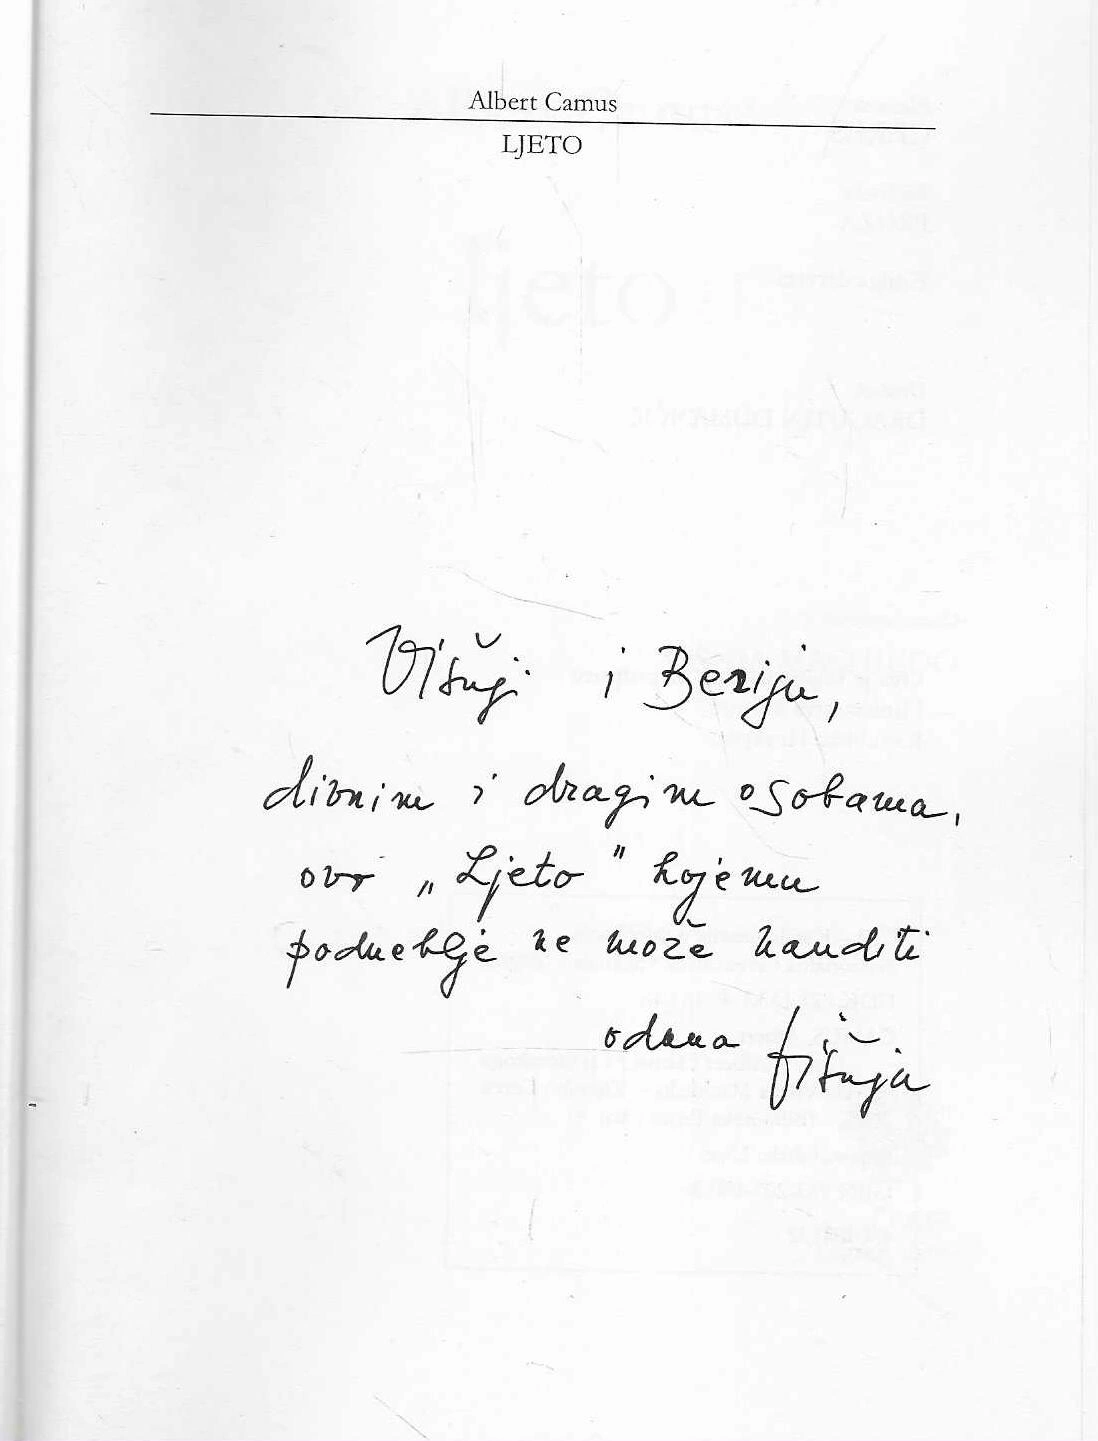 Albert Camus
LJETO
Višnji i Beriju,
divnim i dragim osobama,
ovo „Ljeto" kojemu
podneblje ne može nauditi
odana Višnja